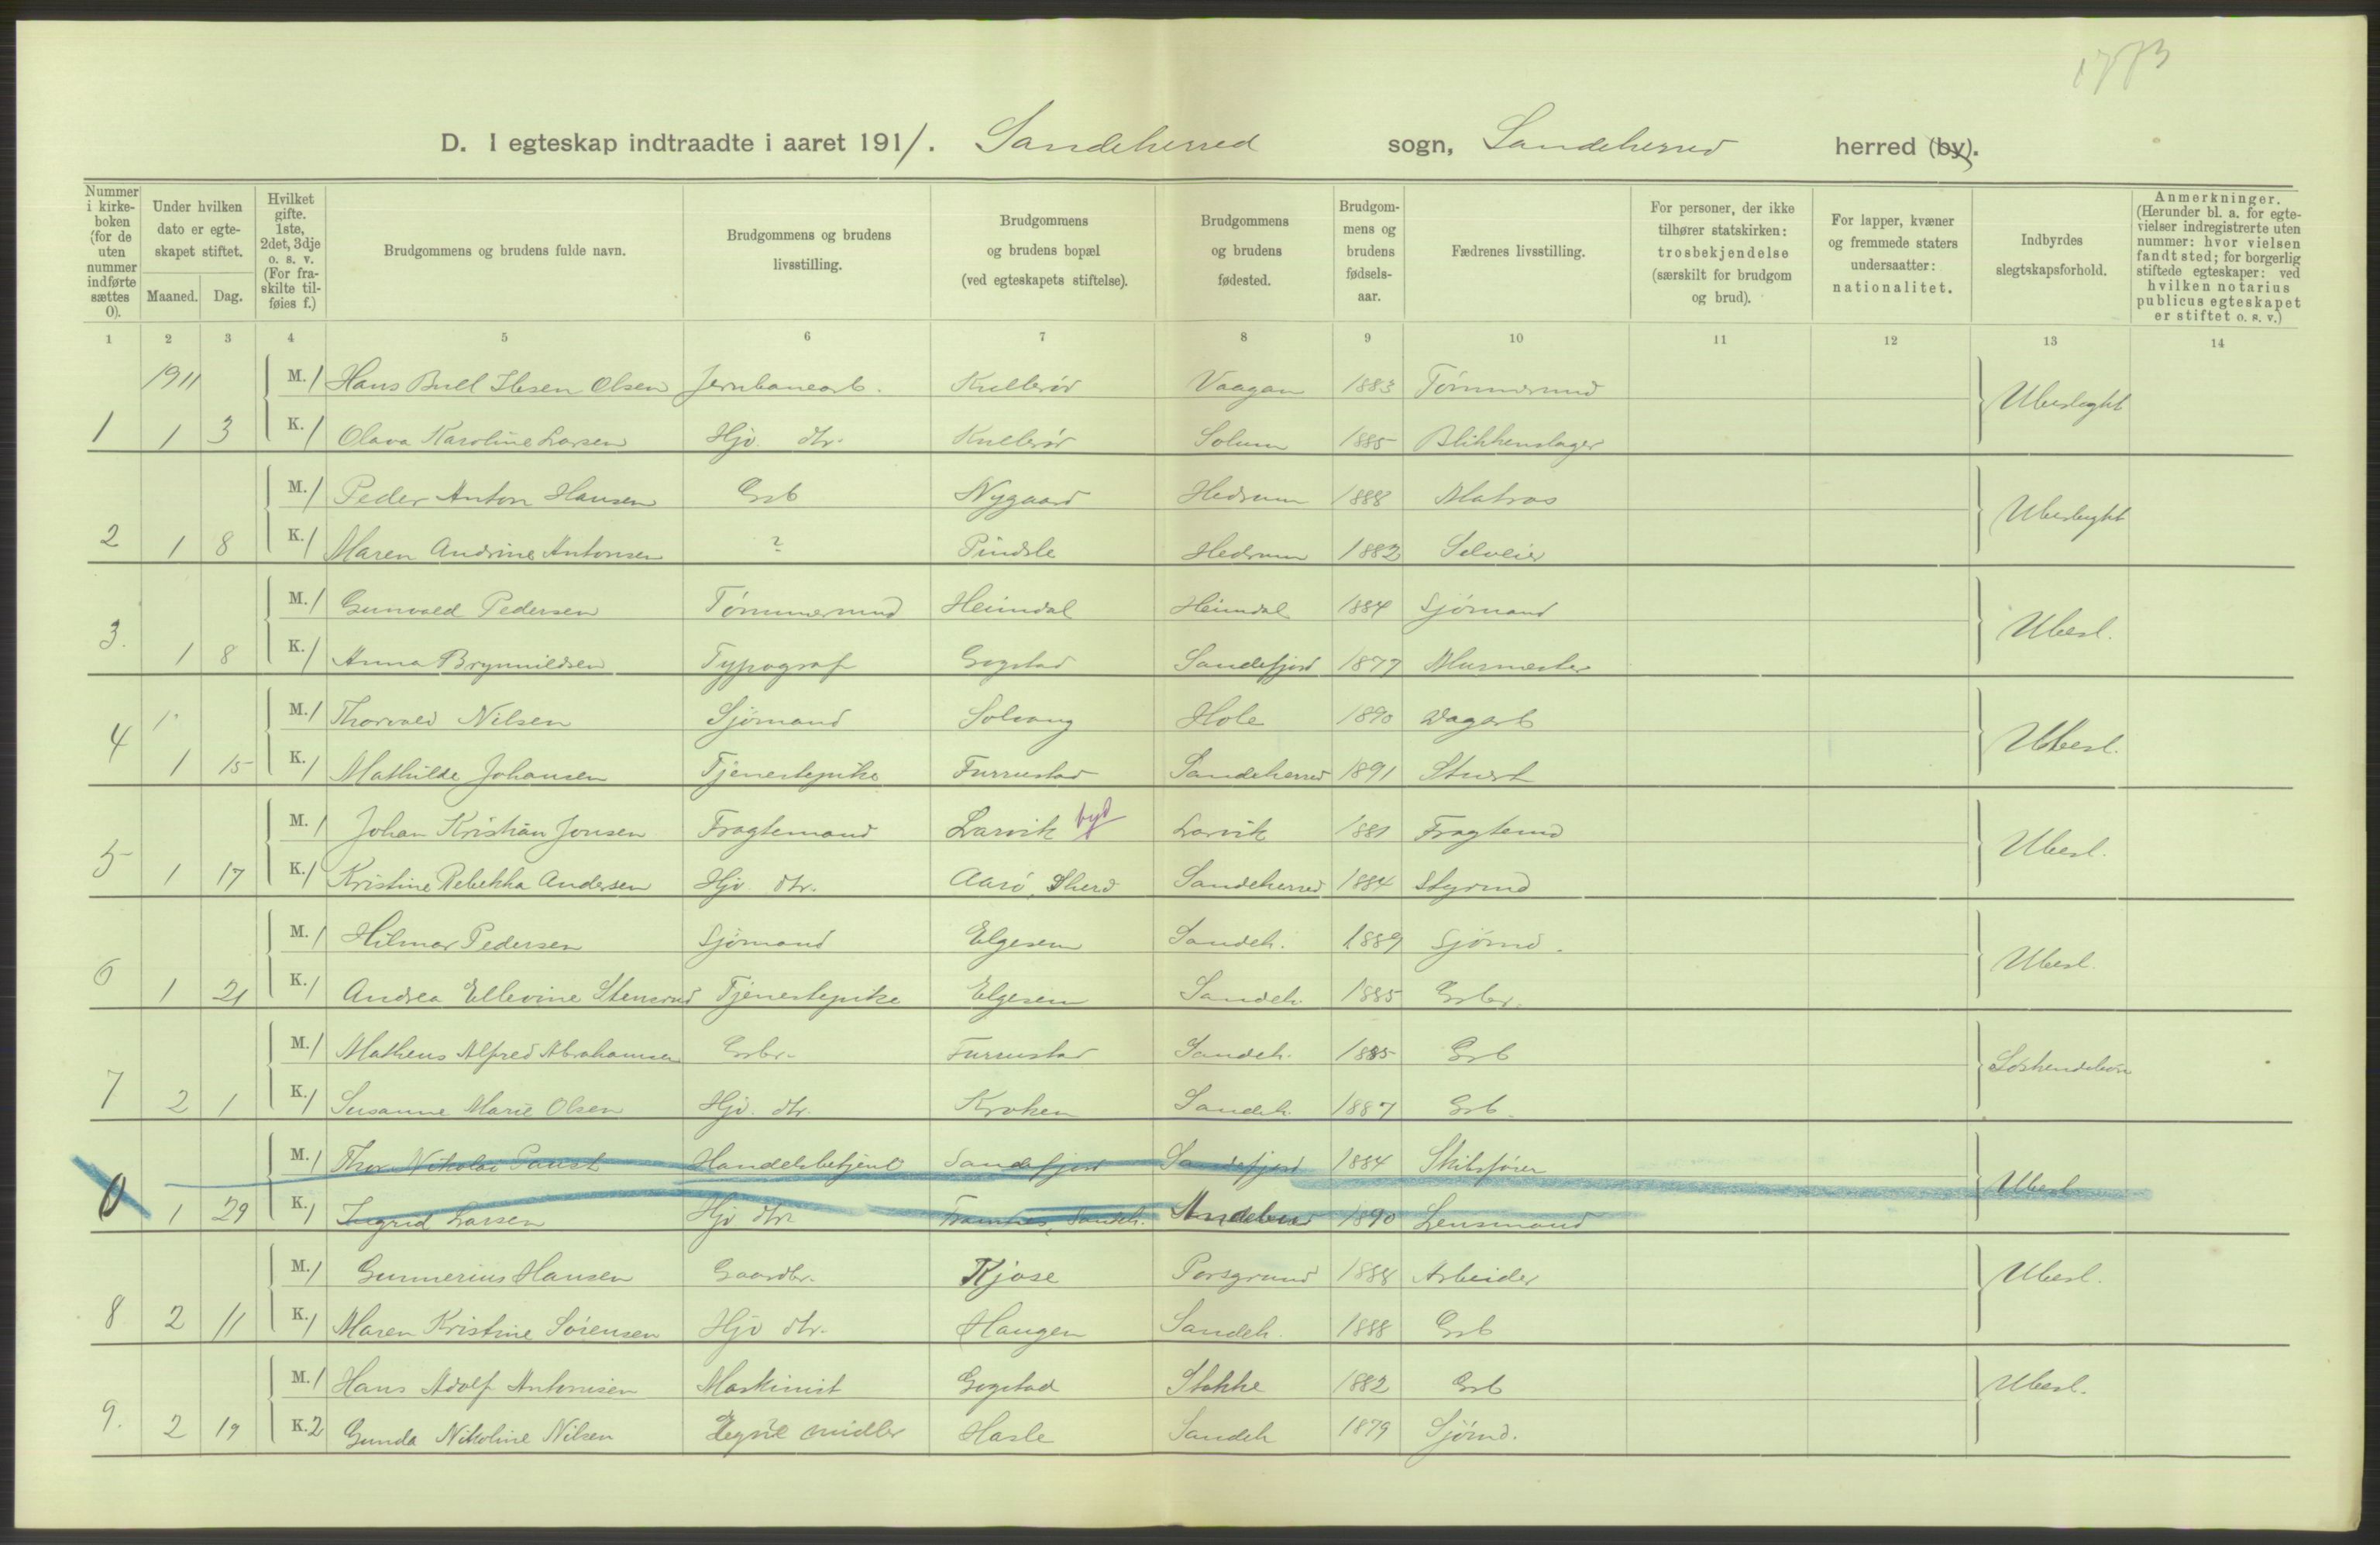 1773
D. I egteskap indtraadte i aaret 1911. Sandeherred sogn, Sandeherred herred (by).
Nummer i kirke-boken (for de uten nummer indførte sættes 0).
Under hvilken dato er egte-skapet stiftet.
Maaned. Dag.
Hvilket gifte. 1ste, 2det, 3dje o. s. v. (For fra-skilte til-føies f.)
Brudgommens og brudens fulde navn.
Brudgommens og brudens livsstilling.
Brudgommens og brudens bopæl (ved egteskapets stiftelse).
Brudgommens og brudens fødested.
Brudgom-mens og brudens fødsels-aar.
Fædrenes livsstilling.
For personer, der ikke tilhører statskirken: trosbekjendelse (særskilt for brudgom og brud).
For lapper, kvæner og fremmede staters undersaatter: nationalitet.
Indbyrdes slegtskapsforhold.
Anmerkninger. (Herunder bl. a. for egte-vielser indregistrerte uten nummer: hvor vielsen fandt sted; for borgerlig stiftede egteskaper: ved hvilken notarius publicus egteskapet er stiftet o. s. v.)
1 2 3 4 5 6 7 8 9 10 11 12 13 14
1911 M. 1 Hans Bull Ibsen Olsen Jernbanearb. Kullerød Vaagan 1883 Tømmermnd Ubeslegtet
1 1 3 K. 1 Olava Karoline Larsen Hjv. dtr. Kullerød Solum 1885 Blikkenslager
M. 1 Peder Anton Hansen Grb Nygaard Hedrum 1888 Matros Ubeslegtet
2 1 8 K. 1 Maren Andrine Antonsen ? Pindsle Hedrum 1882 Selveier
M. 1 Gunvald Pedersen Tømmermnd Heimdal Heimdal 1884 Sjømand Ubesl.
3. 1 8 K. 1 Anna Brynnildsen Typograf Gogstad Sandefjord 1877 Murmester
M. 1 Thorvald Nilsen Sjømand Solvang Hole 1890 Dagarb Ubesl.
4 1 15 K. 1 Mathilde Johansen Tjenestepike Furustad Sandeherred 1891 Stuert
M. 1 Johan Kristian Jonsen Fragtemand Larvik byd Larvik 1881 Fragtemd Ubesl.
5 1 17 K. 1 Kristine Rebekka Andersen Hjv. dtr. Aarø, Sherd Sandeherred 1884 Styrmd
M. 1 Hilmar Pedersen Sjømand Elgesem Sandeh. 1889 Sjømd. Ubesl.
6 1 21 K. 1 Andrea Ellevine Stensrud Tjenestepike Elgesem Sandeh. 1885 Grbr.
M. 1 Matheus Alfred Abrahamsen Grbr. Furustad Sandeh. 1885 Grb Søskendebørn
7 2 1 K. 1 Susanne Marie Olsen Hjv. dtr. Kroken Sandeh. 1887 Grb.
M. 1 Thor Nikolai Paust Handelsbetjent Sandefjord Sandefjord 1884 Skibsfører Ubesl
0 1 29 K. 1 Ingrid Larsen Hjv dtr. Framnes, Sandeh. Andebu 1890 Lensmand
M. 1 Gunnerius Hansen Gaardbr. Kjose Porsgrund 1888 Arbeider Ubesl.
8 2 11 K. 1 Maren Kristine Sørensen Hjv dtr. Haugen Sandeh. 1888 Grb
M. 1 Hans Adolf Antonisen Maskinist Gogstad Stokke 1882 Grb Ubesl.
9. 2 19 K. 2 Gunda Nikoline Nilsen Egne midler Hasle Sandeh 1879 Sjømd.